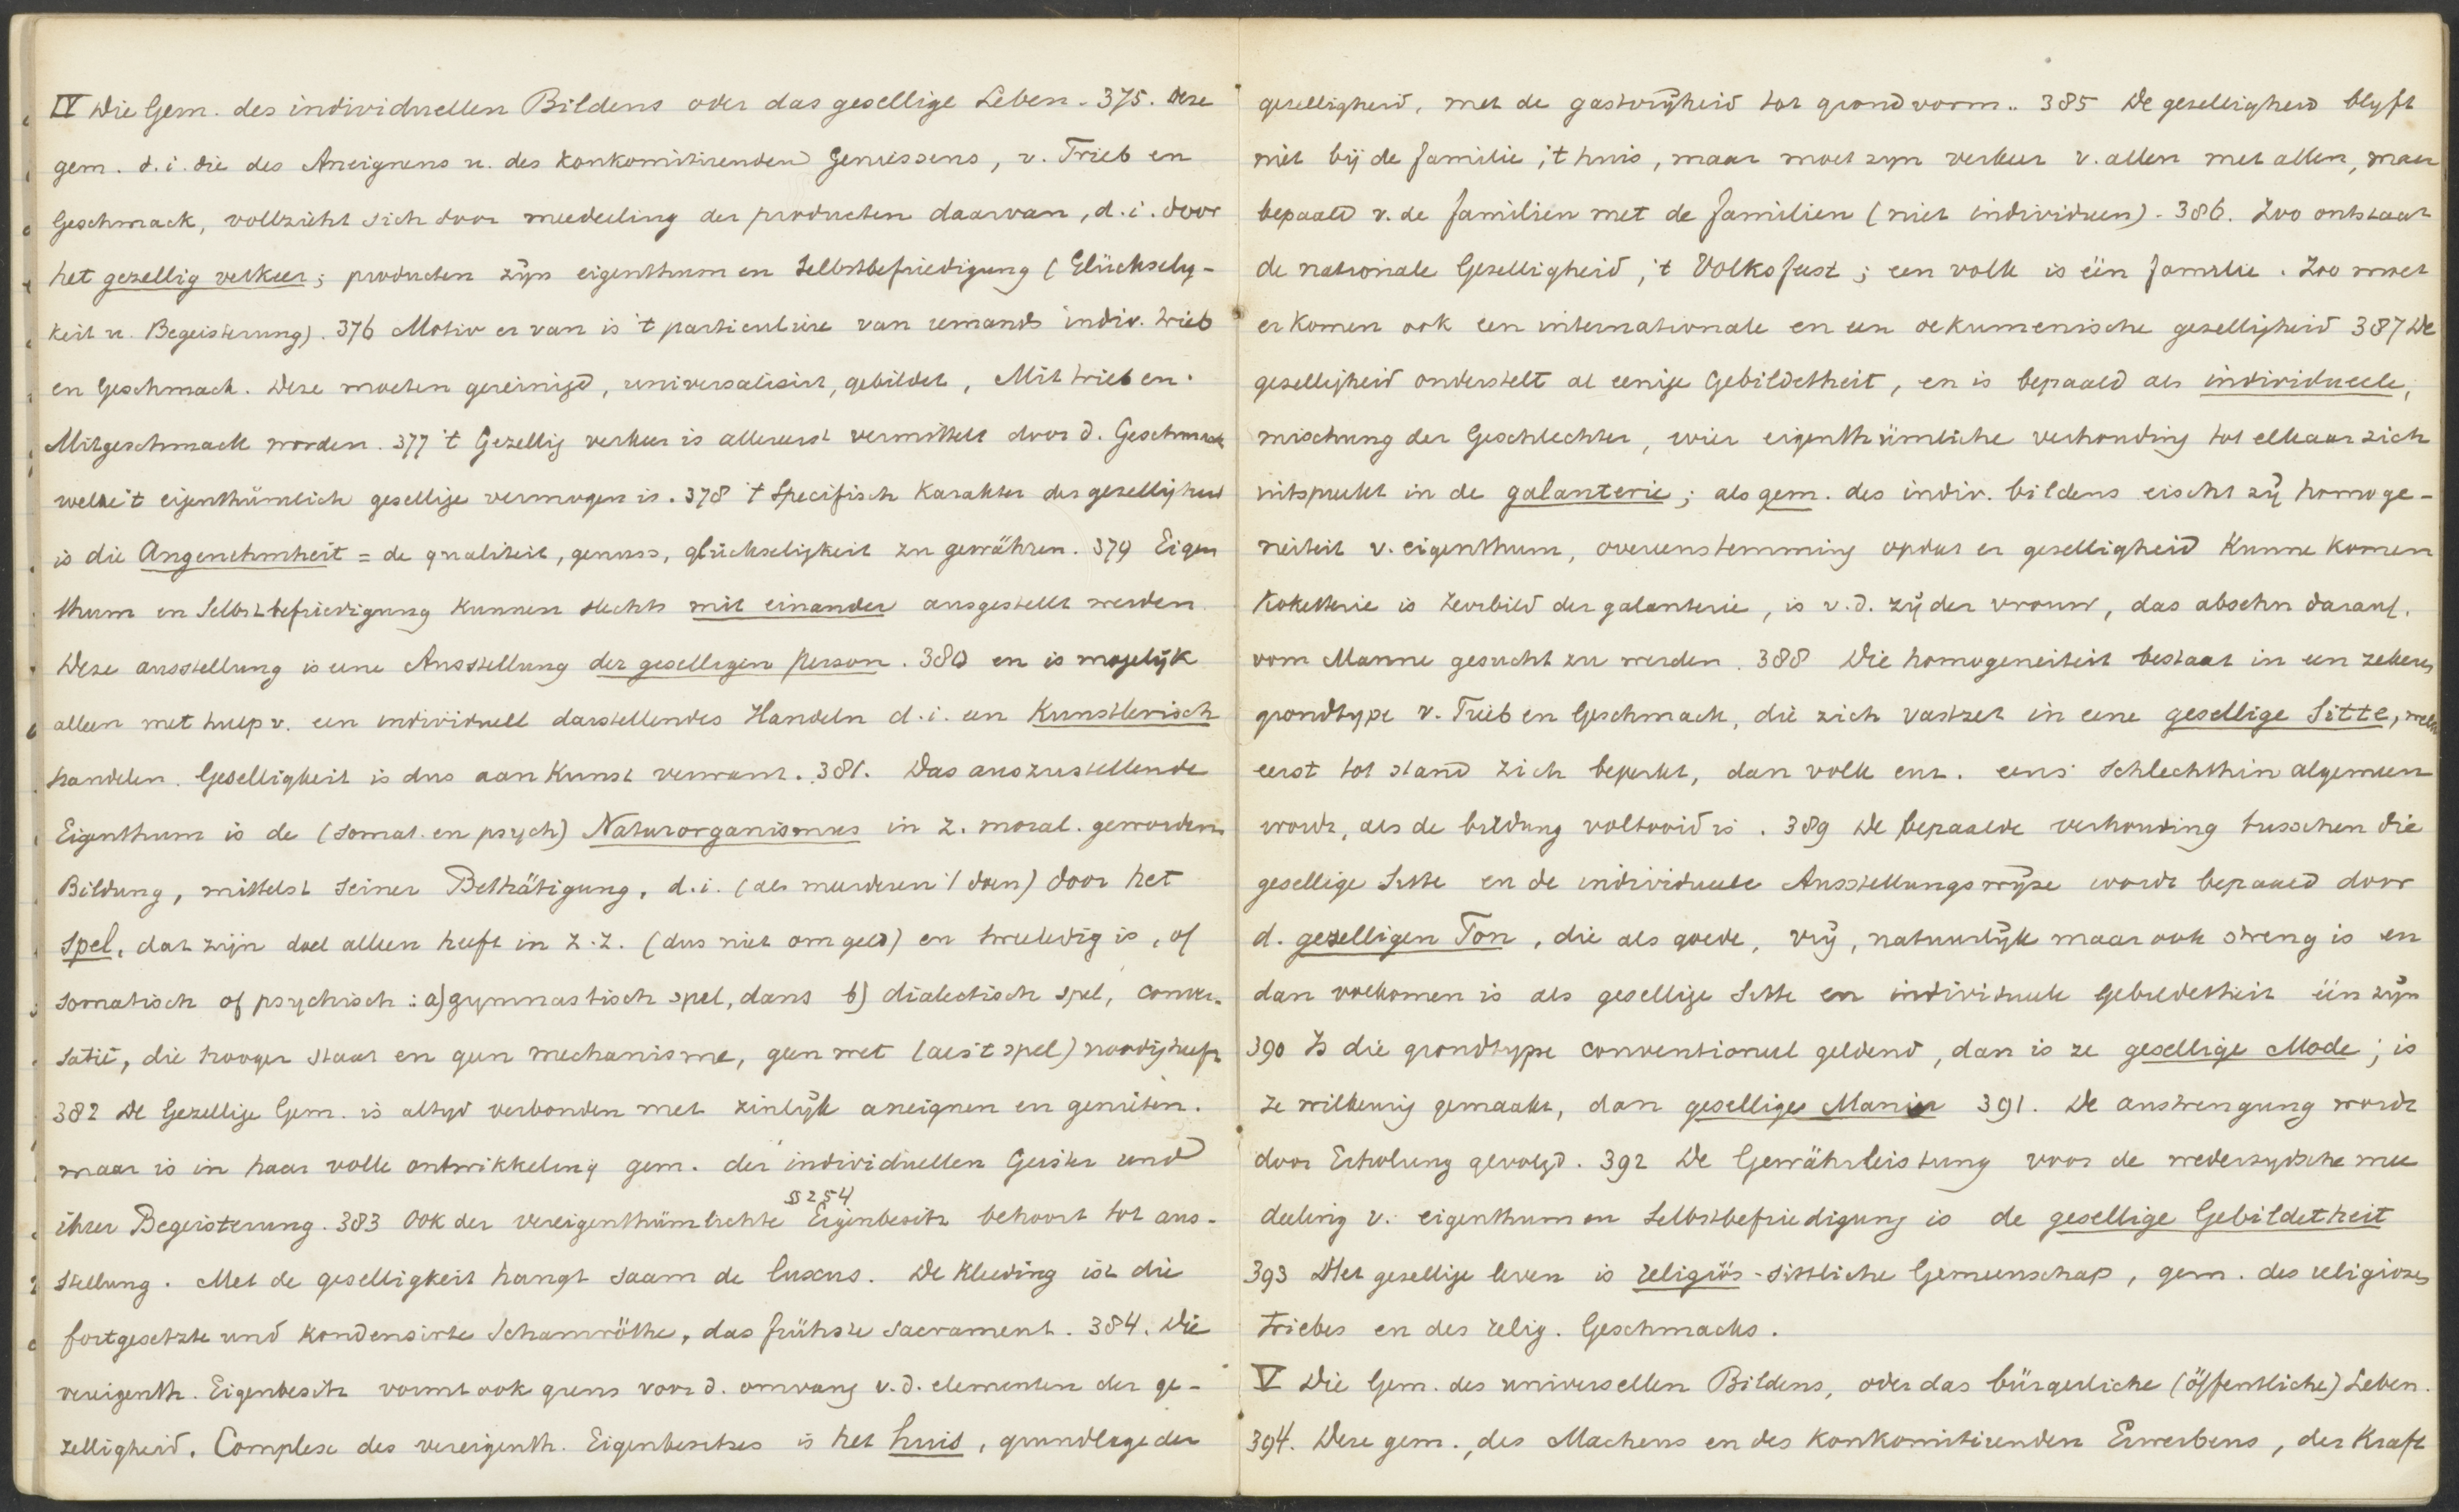 IV Die Gem. des individuellen Bildens oder das gesellige Leben. 375. Deze
gem. d.i. die des Aneignens u. des konkomitirenden Geniessens, v. Trieb en
Geschmack, vollzieht sich door mededeeling der producten daarvan, d.i. door
het gezellig verkeer; producten zijn eigenthum en Selbstbefriedigung (Glückselig-
keit u. Begeisterung). 376 Motiv er van is 't particuliere van iemands indiv. trieb
en Geschmack. Deze moeten gereinigd, universalisirt, gebildet, Mittrieb en.
Mitgeschmack worden. 377 't Gezellig verkeer is allereerst vermittelt door d. Geschmack
welke 't eigenthümlich gesellige vermogen is. 378 't Specifisch karakter der gezelligheid
is die Angenehmheit = de qualiteit, genuss, glückseligkeit zu gewähren. 379 Eigen
thum en Selbstbefriedigung kunnen slechts mit einander ausgestellt werden.
Deze ausstellung is eene Ausstellung der geselligen Person. 380 en is mogelijk
alleen met hulp v. een individuell darstellendes Handeln d.i. een Kunstlerisch
handelen. Geselligkeit is dus aan Kunst verwant. 381. Das auszustellende
Eigenthum is de (somat. en psych) Naturorganismus in z. moral. geworden
Bildung, mittelst seiner Bethätigung, d.i. (als meerderen 't doen) door het
spel, dat zijn doel alleen heeft in z.z. (dus niet om geld) en tweeledig is, of
somatisch of psychisch: a) gymnastisch spel, dans b) dialectisch spel, conver-
satie, die hooger staat en geen mechanisme, geen wet (als 't spel) noodig heeft.
382 De Gezellige Gem. is altijd verbonden met zinlijk aneignen en genieten.
maar is in haar volle ontwikkeling gem. der individuellen Geister und
§ 254
ihrer Begeisterung. 383 Ook der vereigenthümlichte Eigenbesitz behoort tot aus-
stellung. Met de geselligkeit hangt saam de luxus. De kleeding ist die
fortgesetzte und kondensirte Schamröthe, das frühste sacrament. 384. Die
vereigenth. Eigenbesitz vormt ook grens voor d. omvang v.d. elementen der ge-
zelligheid. Complex des vereigenth. Eigenbesitzes is het huis, grundlage der
geselligheid, met de gastvrijheid tot grondvorm.. 385 De geselligheid blyft
niet bij de familie, 't huis, maar moet zyn verkeer v. allen met allen, maar
bepaald v. de familien met de familien (niet individuen). 386. Zoo ontstaat
de nationale Geselligheid, 't Volksfeest; een volk is één familie. Zoo moet
er komen ook een internationale en een oekumenische geselligheid 387 De
geselligheid onderstelt al eenige Gebildetheit, en is bepaald als individueele,
mischung der Geschlechter, wier eigenthümliche verhouding tot elkaar zich
uitspreekt in de galanterie; als gem. des indiv. bildens eischt zij homoge-
neiteit v. eigenthum, overeenstemming opdat er geselligheid kunne komen
Koketterie is Zerrbild der galanterie, is v.d. zij der vrouw, das absehn darauf,
vom Manne gesucht zu werden. 388 Die homogeneiteit bestaat in een zekeren
grondtype v. Trieb en Geschmack, die zich vastzet in eene gesellige Sitte, welke
eerst tot stand zich beperkt, dan volk enz. eens schlechthin algemeen
wordt, als de bildung voltooid is. 389 De bepaalde verhouding tusschen die
gesellige Sitte en de individueele Ausstellungswijze wordt bepaald door
d. geselligen Ton, die als goede, vrij, natuurlijk maar ook streng is en
dan volkomen is als gesellige Sitte en individuele Gebildetheit één zijn
390 Is die grondtype conventioneel geldend, dan is ze gesellige Mode; is
ze willkeurig gemaakt, dan gesellige Manier 391. De anstrengung wordt
door Erholung gevolgd. 392 De Gewährleistung voor de wederzydsche mee
deeling v. eigenthum en Selbstbefriedigung is de gesellige Gebildetheit
393 Het gesellige leven is religiös-sittliche Gemeenschap, gem. des religiozes
triebes en des relig. Geschmacks.
V Die Gem. des universellen Bildens, oder das bürgerliche (öffentliche) Leben.
394. Deze gem., des Machens en des konkomitirenden Erwerbens, der Kraft